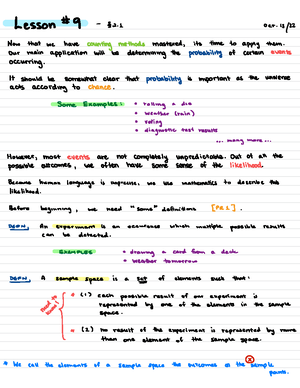 Lesson #9 - §2.1
Oct. 12/22
Now that we have counting methods mastered, its time to apply them.
Our main application will be determining the probability of certain events
occurring.
It should be somewhat clear that probability is important as the universe
acts according to chance.
Some Examples: • rolling a die
• weather (rain)
• voting
• diagnostic test results
... many more ...
However, most events are not completely unpredictable. Out of all the
possible outcomes, we often have some sense of the likelihood.
Because human language is imprecise, we use mathematics to describe this
likelihood.
Before beginning, we need "some" definitions
DEFN: An experiment is an occurrence which multiple possible results
can be detected.
EXAMPLES • drawing a card from a deck
• weather tomorrow
DEFN: A sample space is a set of elements such that:
Need to know!
• (1) each possible result of our experiment is
represented by one of the elements in the sample
space.
• (2) no result of the experiment is represented by more
than one element of the sample space.
* We call the elements of a sample space the outcomes or the sample
points.